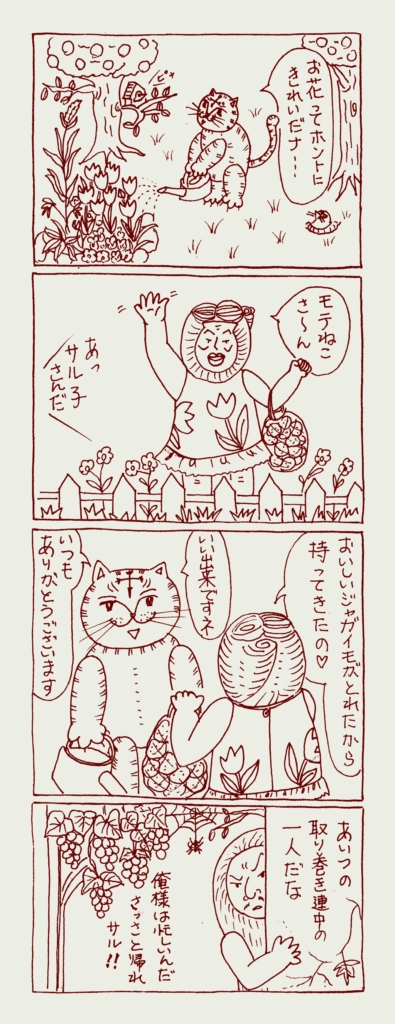 お花ってホントに
きれいだナ…
モテねこ
さ〜ん
あっ
サル子
さんだ
おいしいジャガイモがとれたから
持ってきたの♡
いい出来ですネ
いつも
ありがとうございます
あいつの
取り巻き連中の
一人だな
俺様は忙しいんだ
さっさと帰れ
サル!!